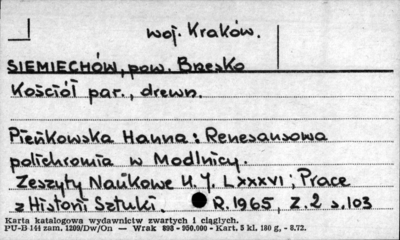 woj. Kraków.
SIEMIECHÓW, pow. Brzesko
Kościół par., drewn.
Pieńkowska Hanna: Renesansowa
polichromia w Modlnicy.
Zeszyty Naukowe U.J. LXXXVI; Prace
z Historii Sztuki. R.1965, Z.2 s.103
Karta katalogowa wydawnictw zwartych i ciągłych.
PU-B-144 zam. 1209/Dw/On — Wrak 898 - 950.000 - Kart. 5 kl. 180 g, - 8.72.